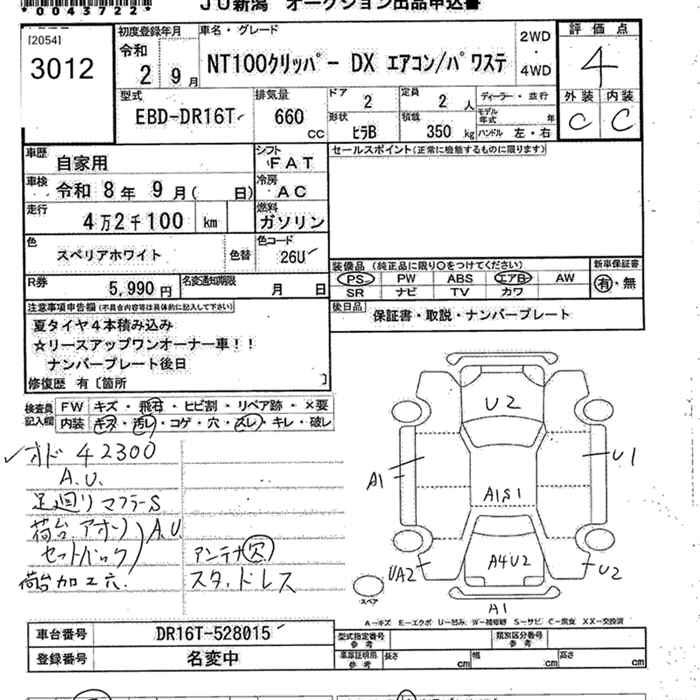 *0043722*
JU新潟 オークション出品申込書
[2054]
3012
初度登録年月
令和
2 9月
車名・グレード
NT100クリッパー DX エアコン/パワステ
2WD
・
4WD
評価点
4
型式
EBD-DR16T
排気量
660
cc
ドア
2
定員
2 人
ディーラー・並行
形状
ピラB
積載
350 kg
モデル年式 年
ハンドル 左・右
外装 内装
C C
車歴
自家用
シフト
FAT
セールスポイント(正常に稼働するものに限ります)
車検
令和 8年 9月( 日)
冷房
AC
走行
4万2千100 km
燃料
ガソリン
色
スペリアホワイト
色替
色コード
26U
R券
5,990円
名変通知期限
月 日
装備品 (純正品に限り○をつけてください)
PS PW ABS エアB AW
SR ナビ TV カワ
新車保証書
有・無
注意事項申告欄(不具合内容等は具体的に記入して下さい)
夏タイヤ4本積み込み
☆リースアップワンオーナー車!!
ナンバープレート後日
修復歴 有〔箇所 〕
後日品
保証書・取説・ナンバープレート
検査員
記入欄
FW キズ・飛石・ヒビ割・リペア跡・×要
内装 キズ・汚レ・コゲ・穴・スレ・キレ・破レ
✓オド 42300
A.U.
足廻り マフラーS
荷台.アオリ
セットバック
A.U
荷台加工穴
アンテナ欠
スタッドレス
U2
A1
U1
A1S1
A4U2
UA2
U2
A1
スペア
A-キズ E-エクボ U-凹み W-補修跡 S-サビ C-腐食 XX-交換済
車台番号
DR16T-528015
登録番号
名変中
型式指定番号
参考
類別区分番号
参考
車庫証明用
参考
長さ cm
幅 cm
高さ cm